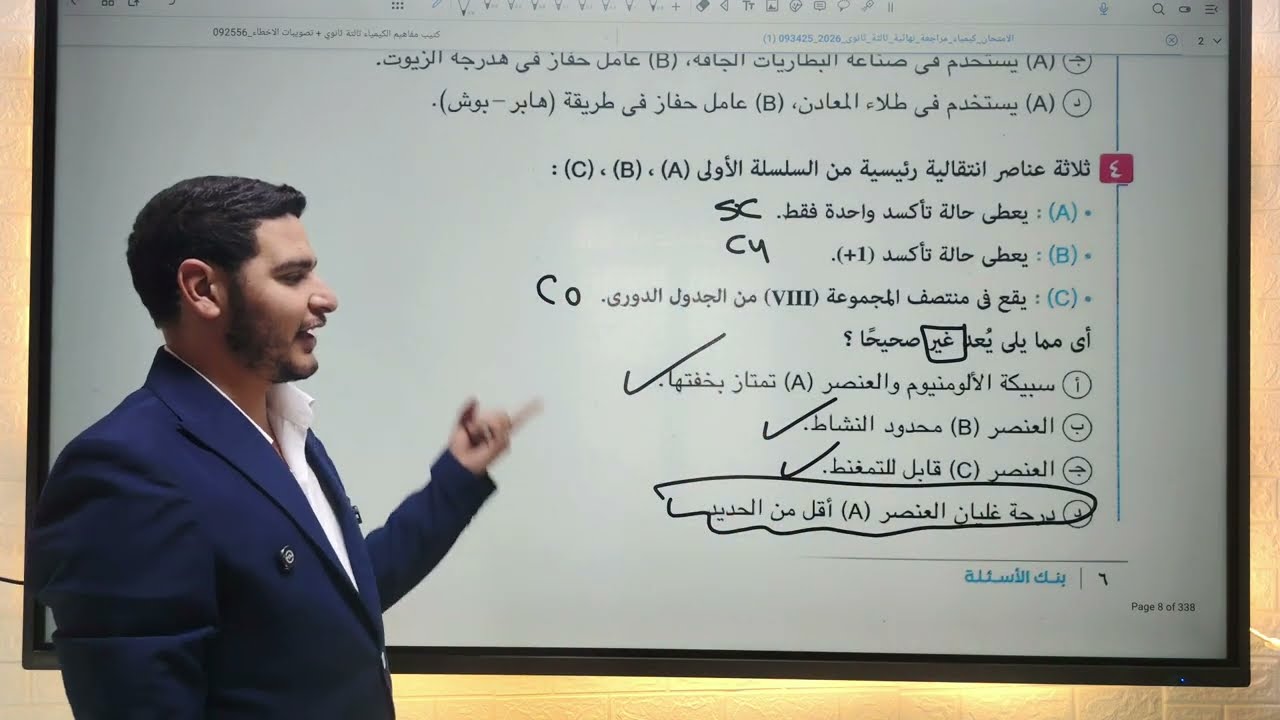 2
الامتحان_كيمياء_مراجعة_نهائية_ثالثة_ثانوى_2026_093425 (1)
كتيب مفاهيم الكيمياء ثالثة ثانوي + تصويبات الاخطاء_092556
جـ (A) يستخدم فى صناعة البطاريات الجافة، (B) عامل حفاز فى هدرجة الزيوت.
د (A) يستخدم فى طلاء المعادن، (B) عامل حفاز فى طريقة (هابر – بوش).
٤ ثلاثة عناصر انتقالية رئيسية من السلسلة الأولى (A) ، (B) ، (C) :
• (A) : يعطى حالة تأكسد واحدة فقط. Sc
• (B) : يعطى حالة تأكسد (+1). Cu
• (C) : يقع فى منتصف المجموعة (VIII) من الجدول الدورى. Co
أى مما يلى يُعد غير صحيحًا ؟
أ سبيكة الألومنيوم والعنصر (A) تمتاز بخفتها.
ب العنصر (B) محدود النشاط.
جـ العنصر (C) قابل للتمغنط.
د درجة غليان العنصر (A) أقل من الحديد
٦ | بنك الأسئلة
Page 8 of 338